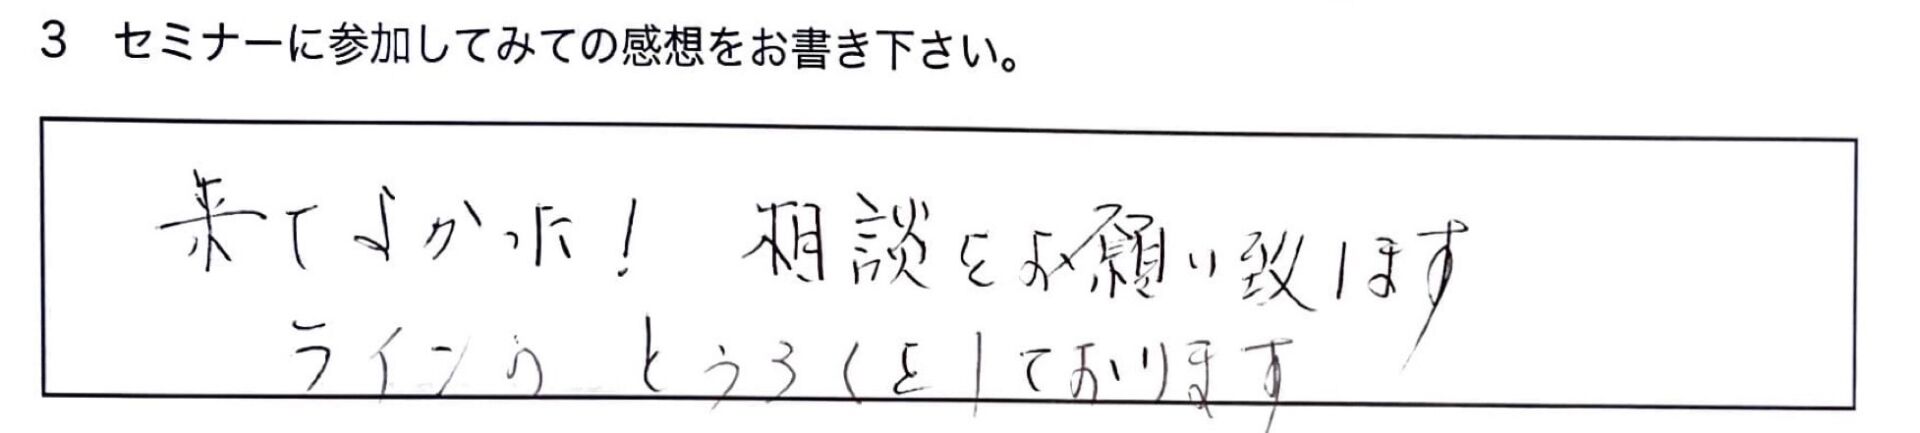 3 セミナーに参加してみての感想をお書き下さい。
来てよかった! 相談をお願い致します
ラインのとうろくをしております